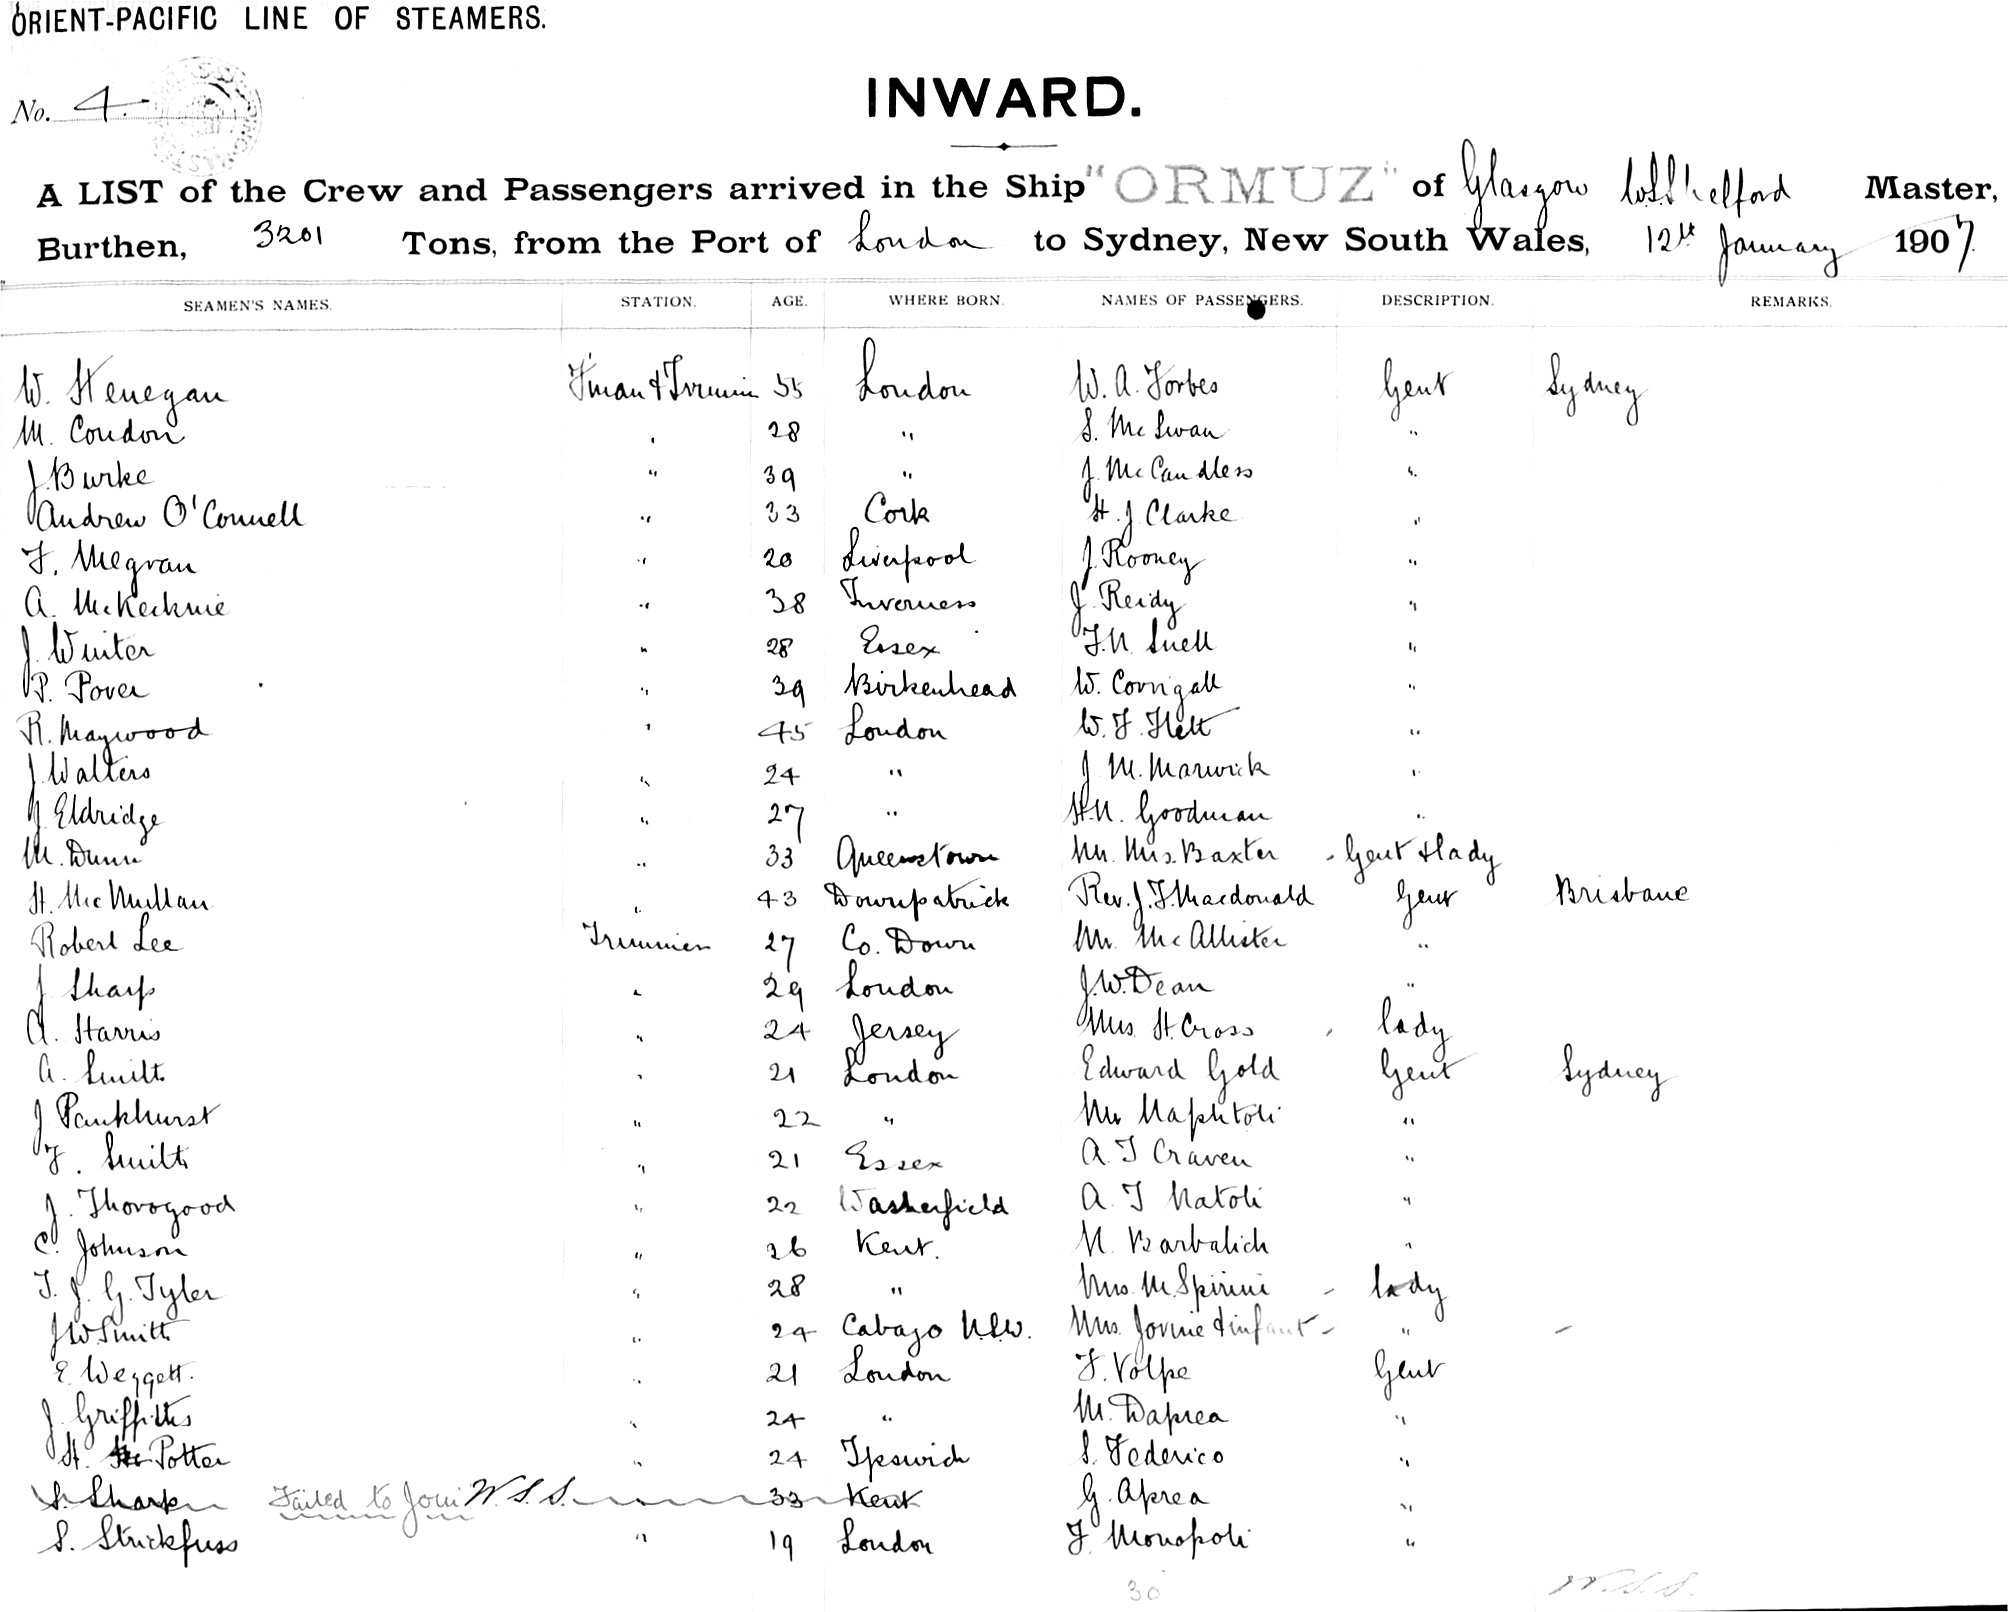 ORIENT-PACIFIC LINE OF STEAMERS.
No. 4.
INWARD.
A LIST of the Crew and Passengers arrived in the Ship "ORMUZ" of Glasgow W.S. Shelford Master,
Burthen, 3201 Tons, from the Port of London to Sydney, New South Wales, 12th January 1907.
SEAMEN'S NAMES. STATION. AGE. WHERE BORN. NAMES OF PASSENGERS. DESCRIPTION. REMARKS.
W. Henegan F'man & Trimmer 55 London W. A. Forbes Gent Sydney
M. Condon " 28 " S. McSwan "
J. Burke " 39 " J. McCandless "
Andrew O'Connell " 33 Cork H. J. Clarke "
F. Megran " 20 Liverpool J. Rooney "
A. McKechnie " 38 Inverness J. Reidy "
J. Winter " 28 Essex F.N. Snell "
P. Pover " 39 Birkenhead W. Corrigall "
R. Maywood " 45 London W. F. Flett "
J. Walters " 24 " J. M. Marwick "
J. Eldridge " 27 " H.N. Goodman "
M. Dunn " 33 Queenstown Mr. Mrs. Baxter - Gent & lady
H. McMullan " 43 Downpatrick Rev. J. F. Macdonald Gent Brisbane
Robert Lee Trimmer 27 Co. Down Mr. McAllister "
J Sharp " 29 London J.W. Dean "
A. Harris " 24 Jersey Mrs. H. Cross lady
A. Smith " 21 London Edward Gold Gent Sydney
J Pankhurst " 22 " Mr Naphtoli "
F. Smith " 21 Essex A. J Craven "
J. Thorogood " 22 A. J Natoli "
C. Johnson " 26 Kent. N. Barbalich "
T. J. G. Tyler " 28 " Mrs. M. Spirini - lady
J W Smith " 24 Cabago N.S.W. Mrs. Jovine & infant - " -
E. Weggett. " 21 London F. Volpe Gent
J. Griffiths " 24 " M. Daprea "
H. Potter " 24 Ipswich S. Federico "
S. Shark Failed to Join W.S.S. 33 Kent G. Aprea "
S. Strickfuss " 19 London F Monopoli "
30 W.S.S.